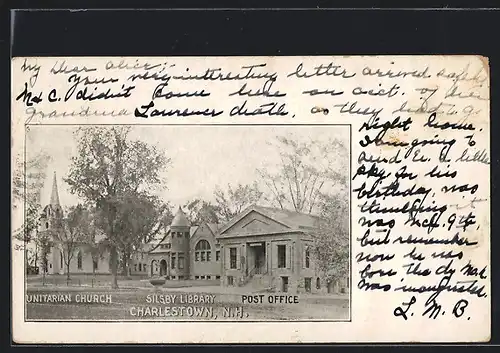 My Dear Alice:
Your very interesting letter arrived safely
M & C. didn't come here on acct. of her
grandma Lawrence death, as they had to go
Right home.
I am going to
send E. a letter
for his
birthday, was
thinking
was Mch. 9th,
but remember
now he was
born the day Mark
was
L. M. B.
UNITARIAN CHURCH
SILSBY LIBRARY
POST OFFICE
CHARLESTOWN, N.H.